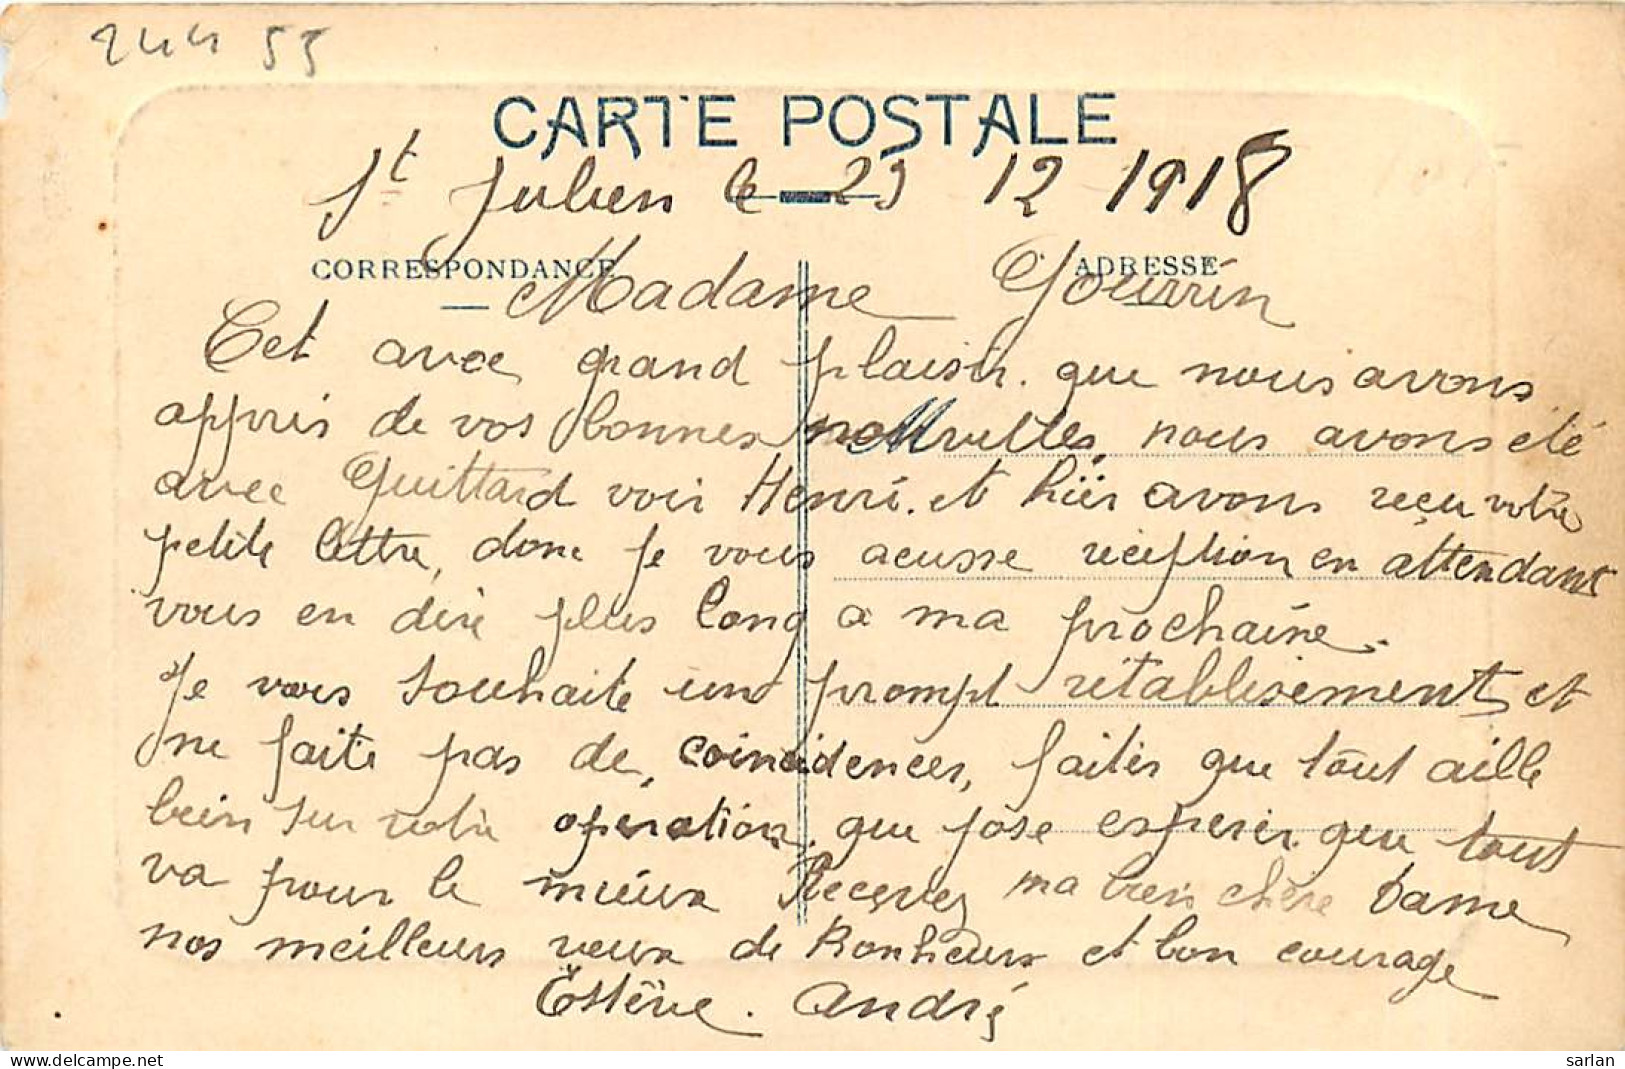 244 55
CARTE POSTALE
St Julien le 23 12 1918
CORRESPONDANCE
ADRESSE
Madame Gourrin
Cet avec grand plaisir. que nous avons
appris de vos bonnes nouvelles, nous avons été
avec Guittard voir Henri. et hier avons reçu votre
petite lettre, donc je vous acusse réception en attendant
vous en dire plus long a ma prochaine.
Je vous souhaite un prompt rétablisement et
ne faite pas de coincidences, faites que tout aille
bien sur votre opération, que jose esperer que tout
va pour le mieux Recevez ma bien chère Dame
nos meilleurs veux de Bonheur et bon courage
Estève. André
sarlan